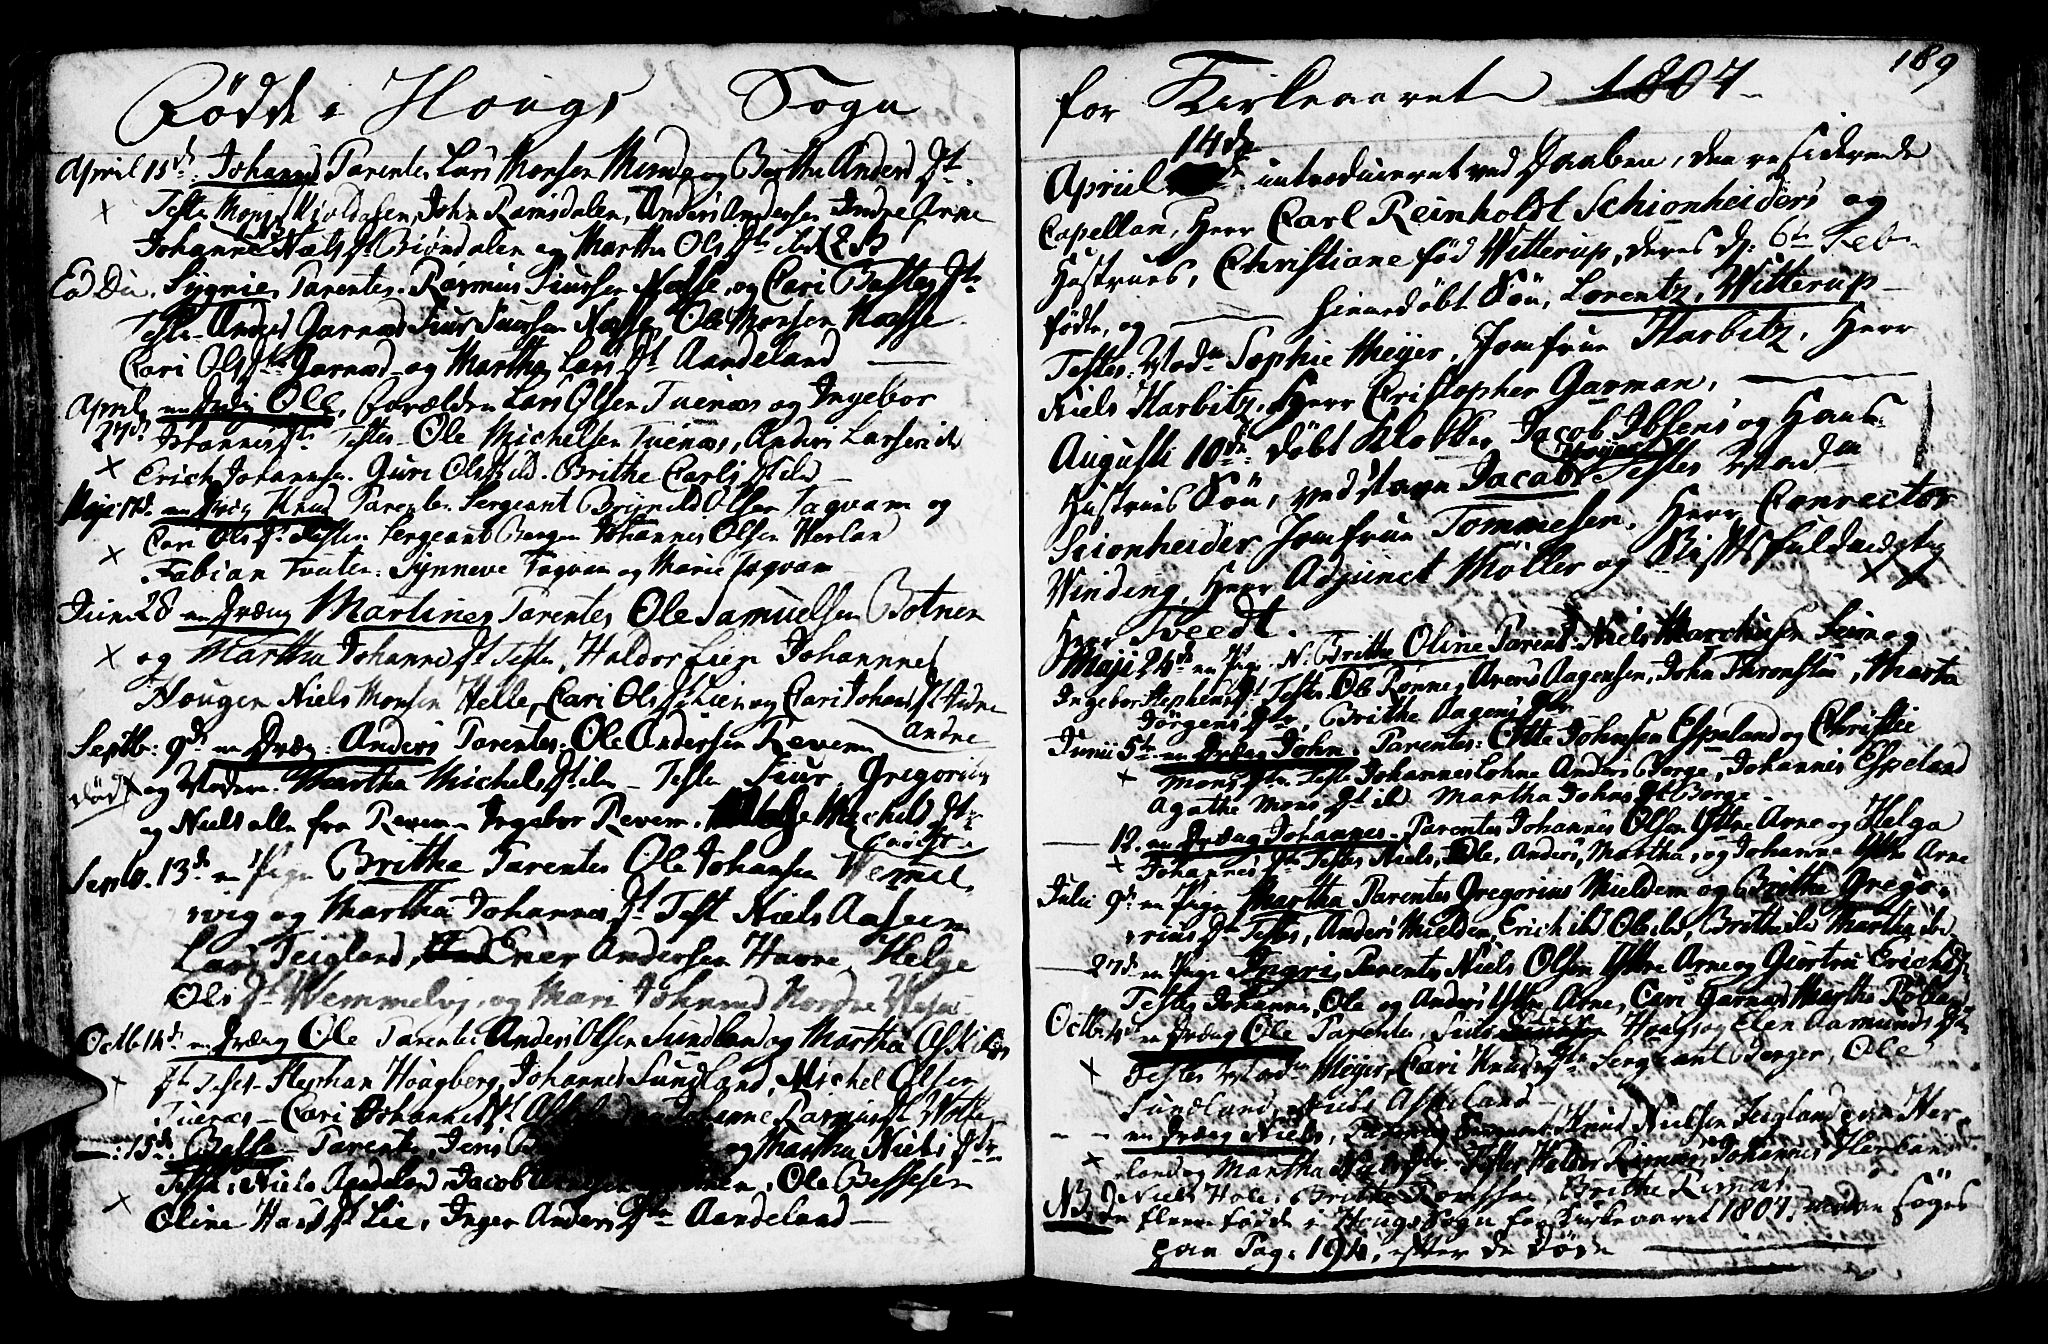 Födde i Hougs Sogn
April 15de Johannes Parentes Lars Monsen Munda og Berthe Anders Dt:
Teste Mons Kioldosen, John Ramsdalen, Anders Andersen Indre Arne
Johanne Niels Dt Biöndalen og Martha Ols Dt ibid
Eod Die, Sygnie, Parentes. Rasmus Siursen Nesse, og Cari
Teste Anders Garnæs Siur Siursen Nesse, Ole Monsen Naesse
Cari Ols Dt Garnæs og Martha Lars Dt Aandeland
April en Dreng Ole, Forældre Lars Olsen Tuenæs og Ingebor
27de Johannes Dt Testes Ole Michelsen Tuenæs, Anders Larsen ibd
× Erich Johannsen. Guri Ols ibid. Brithe Carls Dt ibd
Maji 17de en Dreng Knud Parentes Sergeant Brynild Olsen Fagvam og
Cari Ols Dt Teste. Sergeant Bergen Johannes Olsen Herlan
× Fabian Tvuten: Synneve Fagvam og Marie Fagvam
Juni 28 en Dreng Martines Parentes Ole Samuelsen Botnen
× og Martha Johannes Dt Teste, Haldor Lien Johannnes
Hougen Niels Monsen Helle, Cari Ols Dt Lien og Cari Johans Dt Indre
Andre
Septb: 9de en Dreng: Anders Parentes Ole Andersen Reven
död × og Moder. Martha Michels Dt ibn Teste Siur, Gregorius
og Niels alle fra Reven Ingebor Reven. Michels Dt
Septb. 13de en Pige Brithe Parentes Ole Johansen Wemmel
vig og Martha Johannes Dt Test Niels Aasen
Lars Teigland, Ener Andersen Havre, Helge
Ols Dt Wemmelvig, og Mari Johannes Nordre
Octb 14de en Dreng Ole Parentes Anders Olsen Sundland og Martha
× Dt Teste Stephan Hougberg, Johannes Sundland, Michel Olsen
Tuenæs Cari Johannes Dt Johanne Rasmus Dt
15de Besse Parentes, Jens og Martha Niels Dtr
Teste, Niels Aandeland Jacob Ole Bessesen
× Oline Hans Dt Lie, Inger Anders Dt Aandeland
189
for Kirkeaaret 1807
14de
Apriil introduceret ved Daaben, den residerende
Capellan, Herr Carl Reinholdt Schionheiders og
Hustrues, Christiane fød Witterup, deres d: 6te Febr
fødte, og hiemdøbt Søn, Lorentz, Witterup
Testes: Madm Sophie Meyer, Jomfrue Harbitz, Herr
Niels Harbitz, Herr Christopher Garman,
Augusti 10de døbt Klokker Jacob Ibsens og Hans
Hustrues Søn, ved Navn Jacob Testes Madm
Scionheider Jomfrue Tommesen, Herr Conrector
Winding, Herr Adjunct Möller og Stiftsfuldmægtig
Herr Tveedt.
Maji 24de en Pige N: Brithe Oline Parent: Niels Marchusen Seim og
Ingebor Stephens Dt Testes Ole Rønne, Arens Aagensen, John Thronstun, Marta
Jörgens Dtr, Brithe Aagens Dtr
Junii 5te en Dreng John. Parentes: Otte Johnsen Espeland og Christie
× Mons Dtr Teste Johannes Lohne Anders Borge, Johannes Espeland
Agathe Mons Dt ibd Martha Johns Dt Borge
12. en Dreng Johannes. Parentes Johannes Olsen Ytre Arne og Helga
× Johannes Dt Testes Niels, Ole, Anders, Martha, og Johanne Ytre Arne
Julii 9de en Pige Martha Parentes Gregorius Mielden og Brithe Grego
rius Dt Testes, Anders Mielden, Erich ibd Ole ibd, Brithe ibd Martha ibd
27de en Pige Ingri, Parentes Niels Olsen Ytre Arne og Giertru Erichs Dt
Testes Johannes, Ole og Anders Ytre Arne, Cari Garnæs Martha Rolland
Octb: 4de en Dreng Ole Parentes Niels Hougs og Elen Aamunds Dtr
× Testes Madm Meyer, Cari Knuds Dtr Sergeant Berger, Ole
Sundland, Niels Asheland
en Dreng Niels, Parentes Knud Nielsen Teigland paa Her
× land og Martha Niels Dtr Testes Haldor Rimæs, Johannes Herland
Niels Hole, Brithe Romsløe, Brithe Rimæs
NB, De fleere fødde i Hougs Sogn for Kirkeaaret 1807, søges
paa Pag: 194, efter de døde